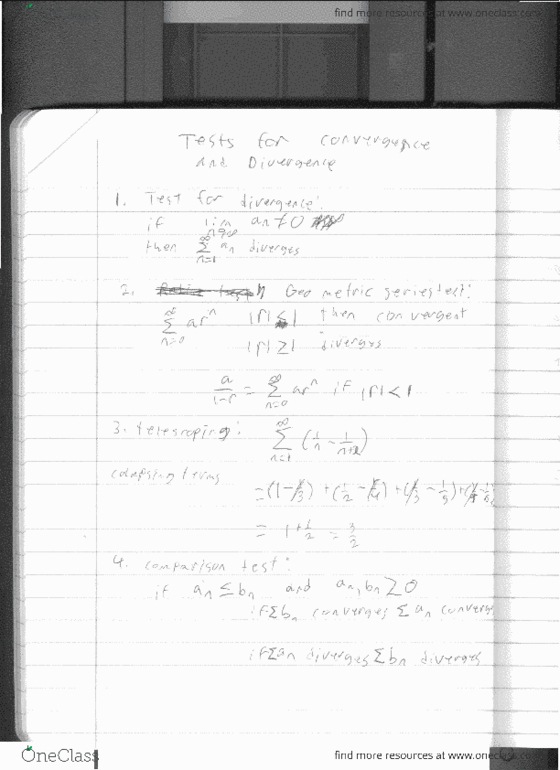 find more resources at www.oneclass.com
Tests for convergence
and Divergence
1. Test for divergence:
if lim n→∞ an ≠ 0
then ∞ Σ n=1 an diverges
2. Geometric series test:
∞ Σ n=0 ar^n |r| < 1 then convergent
|r| ≥ 1 diverges
a/(1-r) = ∞ Σ n=0 ar^n if |r| < 1
3. telescoping: ∞ Σ n=1 (1/n - 1/(n+2))
terms
= (1 - 1/3) + (1/2 - 1/4) + (1/3 - 1/5) + (1/4 - 1/6)
= 1 + 1/2 = 3/2
4. comparison test:
if an ≤ bn and an, bn ≥ 0
if Σbn converges Σan converge
if Σan diverges Σbn diverges
OneClass
find more resources at www.oneclass.com